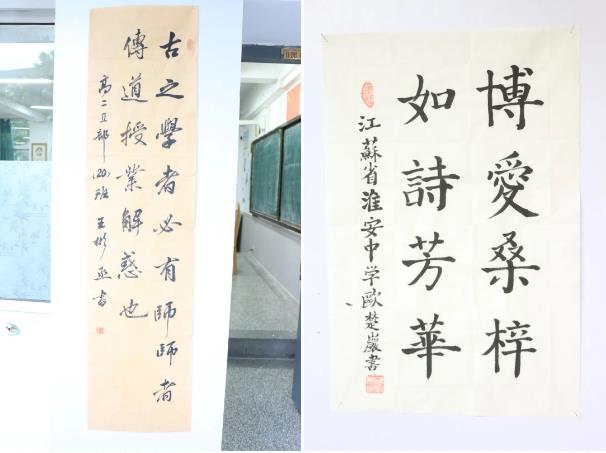 古之學者必有師師者
傳道授業解惑也
高二五部(20)班王彬丞書
博愛桑梓
如詩芳華
江蘇省淮安中学歐楚巖書